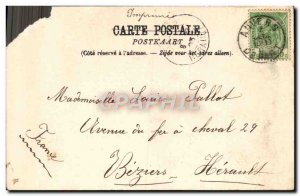 Imprimé
CARTE POSTALE
POSTKAART
(Côté réservé à l'adresse. — Zijde voor het adres alleen).
Mademoiselle Pallot
Avenue du fer à cheval 29
Béziers - Hérault
France